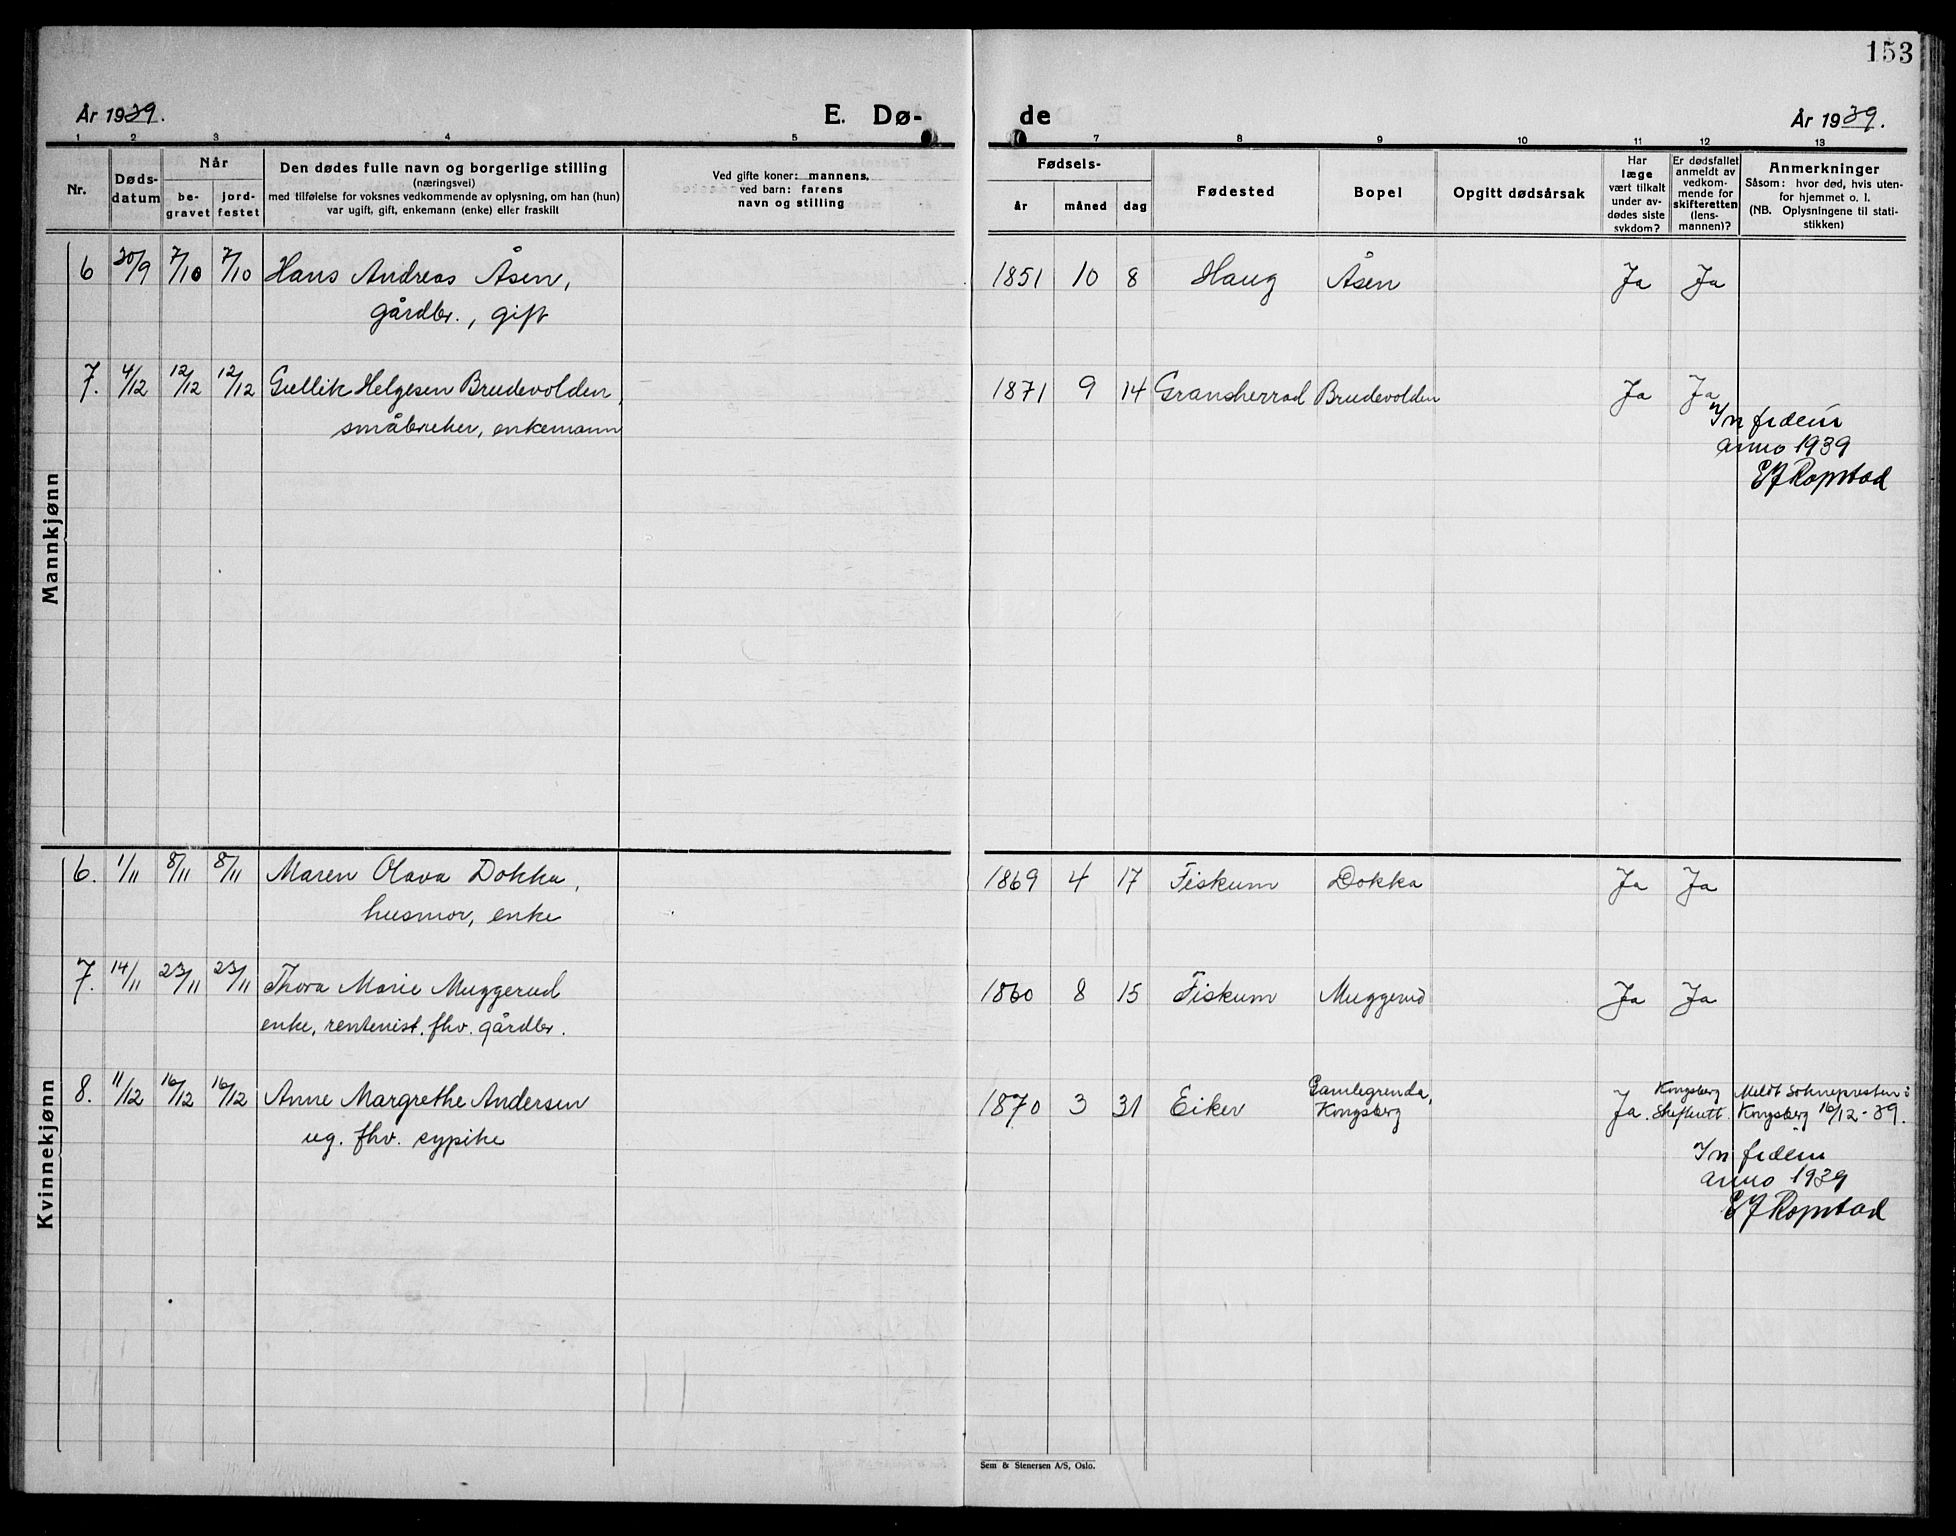 153
År 1939.
E. Dø-
de
År 1939.
1 2 3 4 5 7 8 9 10 11 12 13
Nr.
Døds-
datum
Når
be-
gravet
jord-
festet
Den dødes fulle navn og borgerlige stilling
(næringsvei)
med tilføielse for voksnes vedkommende av oplysning, om han (hun)
var ugift, gift, enkemann (enke) eller fraskilt
Ved gifte koner: mannens,
ved barn: farens
navn og stilling
Fødsels-
år måned dag
Fødested
Bopel
Opgitt dødsårsak
Har
læge
vært tilkalt
under av-
dødes siste
sykdom?
Er dødsfallet
anmeldt av
vedkom-
mende for
skifteretten
(lens-
mannen)?
Anmerkninger
Såsom: hvor død, hvis uten-
for hjemmet o. l.
(NB. Oplysningene til stati-
stikken)
Mannkjønn
6 30/9 7/10 7/10 Hans Andreas Åsen, 1851 10 8 Haug Åsen Ja Ja
gårdbr., gift
7. 4/12 12/12 12/12 Gullik Helgesen Brudevolden, 1871 9 14 Gransherrad Brudevolden Ja Ja
småbruker, enkemann
In fidem
anno 1939
EJ Ropstad
Kvinnekjønn
6. 1/11 8/11 8/11 Maren Olava Dokka, 1869 4 17 Fiskum Dokka Ja Ja
husmor, enke
7. 14/11 23/11 23/11 Thora Marie Muggerud 1860 8 15 Fiskum Muggerud Ja Ja
enke, rentenist. fhv. gårdbr.
8. 11/12 16/12 16/12 Anne Margrethe Andersen 1870 3 31 Eiker Gamlegrenda, Kongsberg Ja. Kongsberg Skifterett. Meldt Soknepresten i Kongsberg 16/12-39.
ug. fhv. sypike
In fidem
anno 1939
EJ Ropstad
Sem & Stenersen A/S, Oslo.